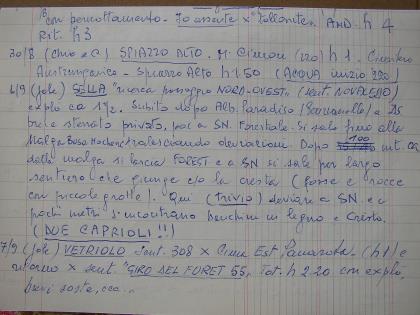 con pernottamento. Io assente x Follonica. AND. h 4
Rit. h 3
30/8 (Chio e C.) SPIAZZO ALTO. M. Cimon (220) h 1. Cimitero
Austrungarico - Spiazzo Alto h 1.50 (ACQUA inizio 220)
6/9 (sole) SELLA "ricerca passaggio NORD-OVEST" (sent. NOVALEDO)
explo ca 1½. Subito dopo Alb. Paradiso (
brei e sterrato privato, poi a SN. Forestale. Si sale fino alla
Malga Busa tralasciando deviazioni. Dopo 100 mt. ca
dalla malga si lascia FOREST e a SN si sale per largo
sentiero che giunge c/o la cresta (fosse e rocce
con piccole grotte). Qui (TRIVIO) deviare a SN. e a
pochi metri s'incontrano banchini in legno e Cristo.
(DUE CAPRIOLI!!)
7/9 (sole) VETRIOLO Sent. 308 x Cima Est Panarotta (h 1) e
ritorno x sent. "GIRO DEL FORET 55". Tot. h 2.20 con explo,
brevi soste, ecc...